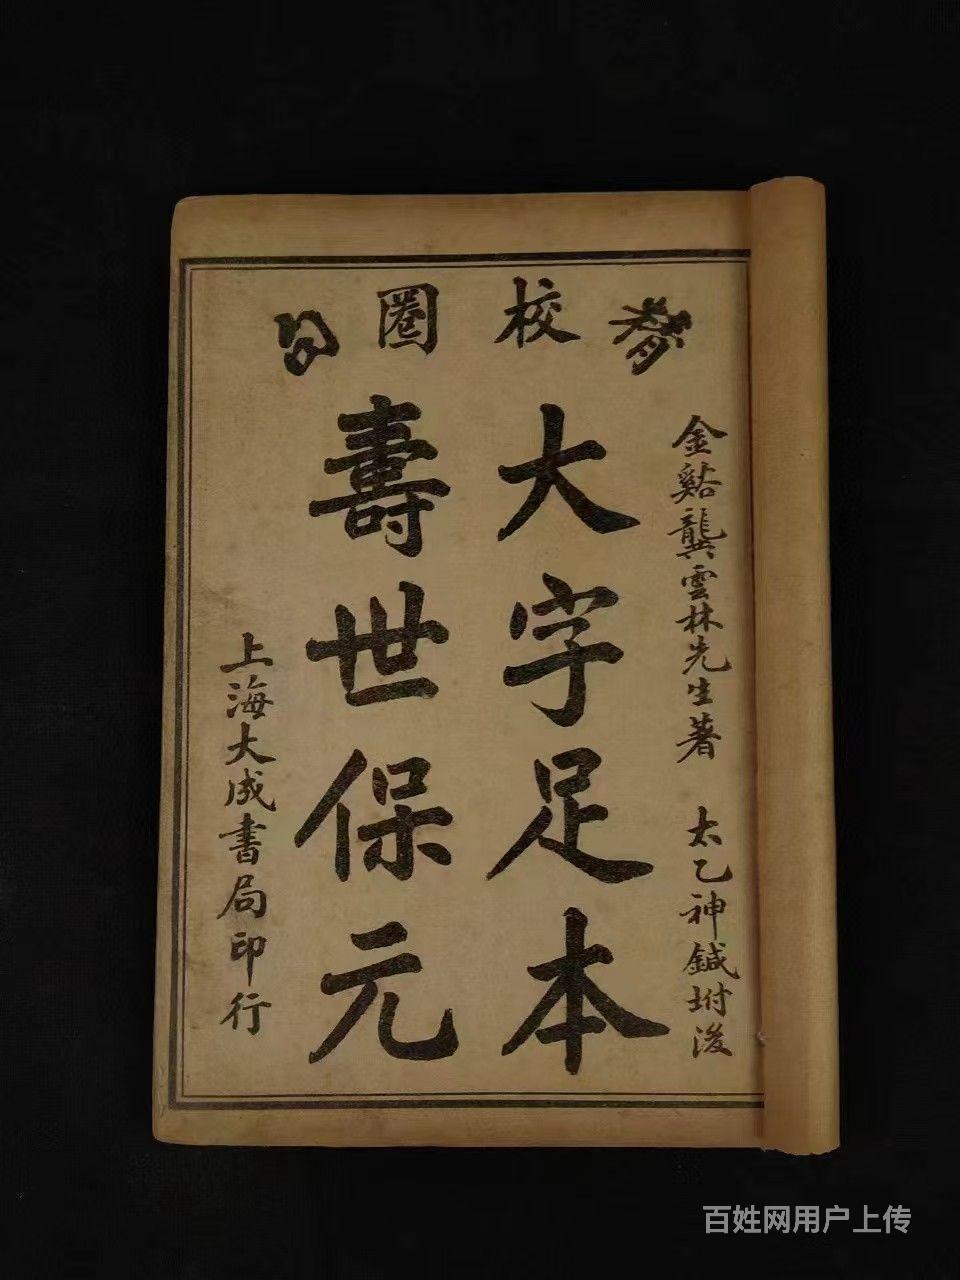 校圈
金谿龔雲林先生著 太乙神鍼坿後
大字足本
壽世保元
上海大成書局印行
百姓网用户上传